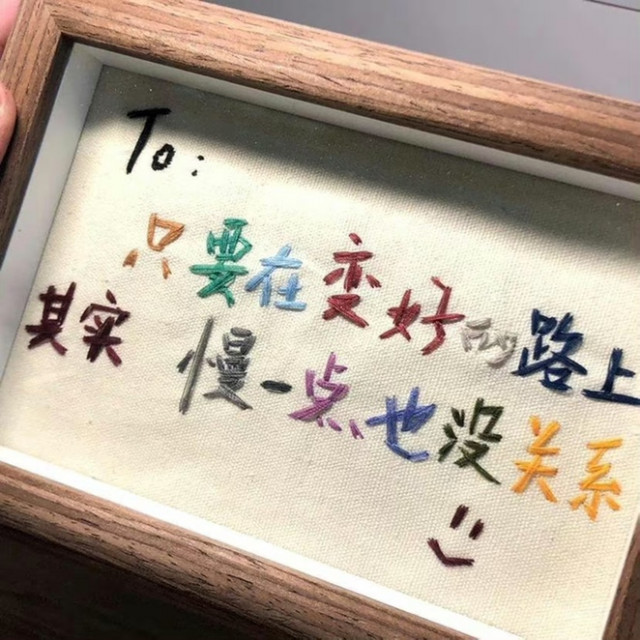 To:
只要在变好的路上
其实慢一点也没关系